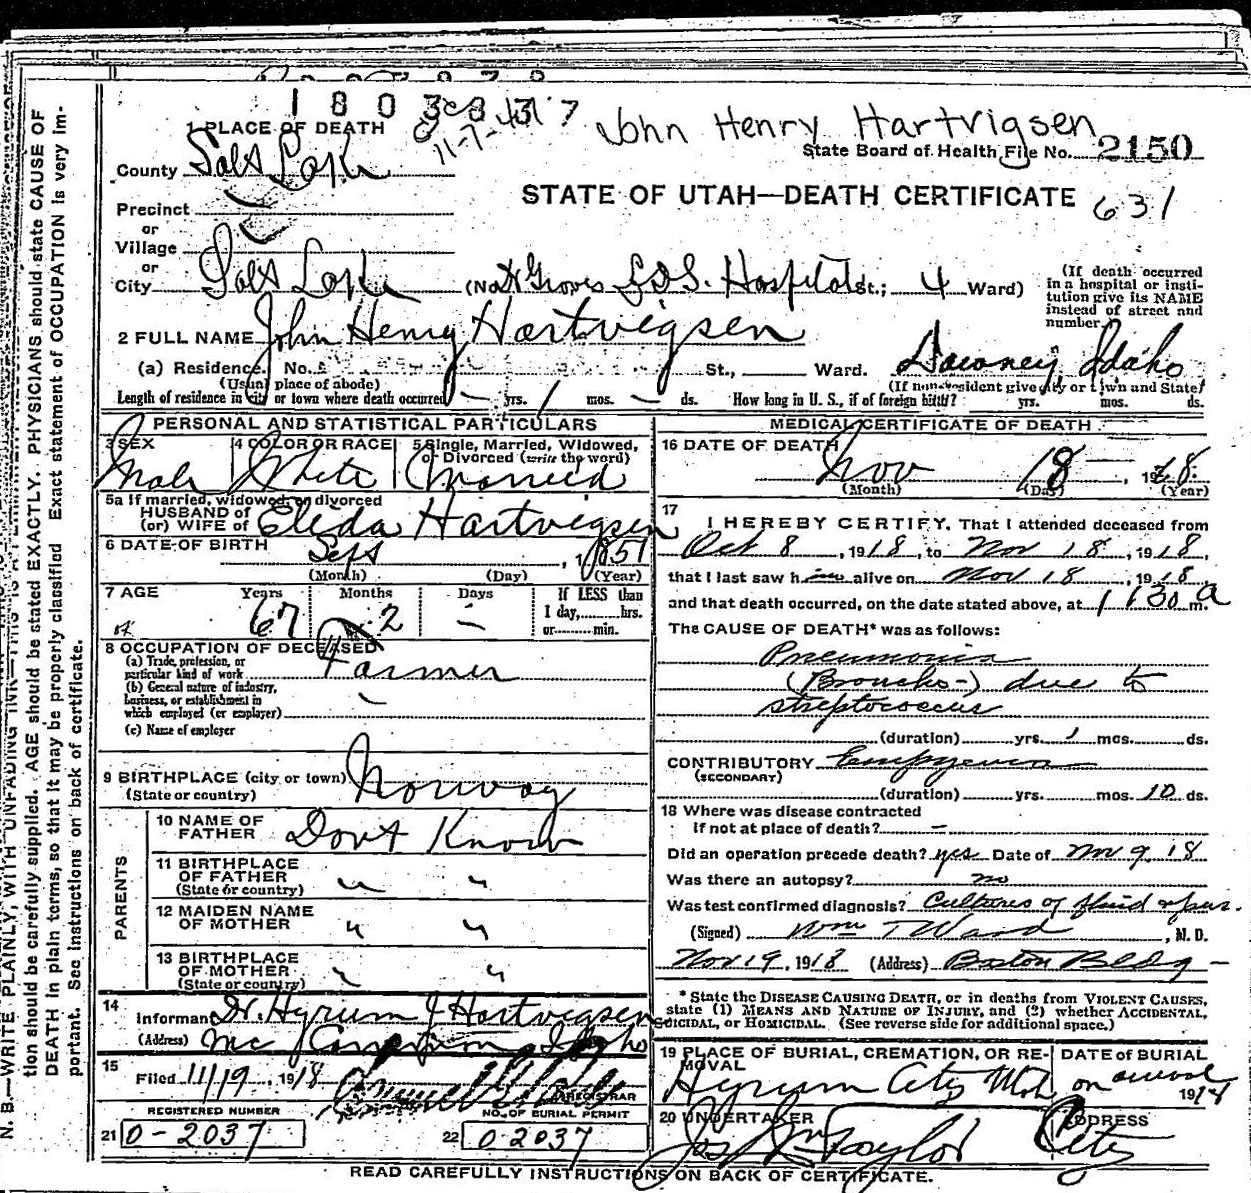 John Henry Hartvigsen
State Board of Health File No. 2150
STATE OF UTAH—DEATH CERTIFICATE 631
1 PLACE OF DEATH
11-7-
County Salt Lake
Precinct
or
Village
or
City Salt Lake (No. Dr Groves L.D.S. Hospital St.; 4 Ward)
(If death occurred in a hospital or institution give its NAME instead of street and number.)
2 FULL NAME John Henry Hartvigsen
(a) Residence. No. St., Ward. Downey Idaho
(Usual place of abode) (If non-resident give city or town and State)
Length of residence in city or town where death occurred — yrs. 1 mos. — ds. How long in U. S., if of foreign birth? yrs. mos. ds.
PERSONAL AND STATISTICAL PARTICULARS
3 SEX Male
4 COLOR OR RACE White
5 Single, Married, Widowed, or Divorced (write the word) Married
5a If married, widowed, or divorced
HUSBAND of
(or) WIFE of Elida Hartvigsen
6 DATE OF BIRTH Sept , 1851
(Month) (Day) (Year)
7 AGE Years 67 Months 2 Days —
If LESS than 1 day,......hrs. or......min.
8 OCCUPATION OF DECEASED
(a) Trade, profession, or particular kind of work Farmer
(b) General nature of industry, business, or establishment in which employed (or employer)
(c) Name of employer
9 BIRTHPLACE (city or town) Norway
(State or country)
PARENTS
10 NAME OF FATHER Dont Know
11 BIRTHPLACE OF FATHER (State or country) " "
12 MAIDEN NAME OF MOTHER " "
13 BIRTHPLACE OF MOTHER (State or country) " "
14 Informant Dr. Hyrum J Hartvigsen
(Address) Mc Idaho
15 Filed 11/19, 1918
REGISTRAR
REGISTERED NUMBER
21 0-2037
NO. OF BURIAL PERMIT
22 0 2037
MEDICAL CERTIFICATE OF DEATH
16 DATE OF DEATH Nov 18 , 1918
(Month) (Day) (Year)
17 I HEREBY CERTIFY, That I attended deceased from
Oct 8, 1918, to Nov 18, 1918,
that I last saw him alive on Nov 18, 1918
and that death occurred, on the date stated above, at 1130 a m.
The CAUSE OF DEATH* was as follows:
Pneumonia
(Broncho-) due to
streptococcus
(duration) yrs. 1 mos. ds.
CONTRIBUTORY Empyema
(SECONDARY)
(duration) yrs. mos. 10 ds.
18 Where was disease contracted
if not at place of death? —
Did an operation precede death? yes Date of Nov 9 18
Was there an autopsy? no
Was test confirmed diagnosis? Cultures of fluid & pus.
(Signed) Wm T Ward, M. D.
Nov 19, 1918 (Address) Boston Bldg -
* State the DISEASE CAUSING DEATH, or in deaths from VIOLENT CAUSES, state (1) MEANS AND NATURE OF INJURY, and (2) whether ACCIDENTAL, SUICIDAL, or HOMICIDAL. (See reverse side for additional space.)
19 PLACE OF BURIAL, CREMATION, OR REMOVAL Hyrum City Utah
DATE of BURIAL on arrival 1918
20 UNDERTAKER Jos Wm Taylor
ADDRESS City
READ CAREFULLY INSTRUCTIONS ON BACK OF CERTIFICATE.
tion should be carefully supplied. AGE should be stated EXACTLY. PHYSICIANS should state CAUSE OF
DEATH in plain terms, so that it may be properly classified. Exact statement of OCCUPATION is very im-
portant. See instructions on back of certificate.